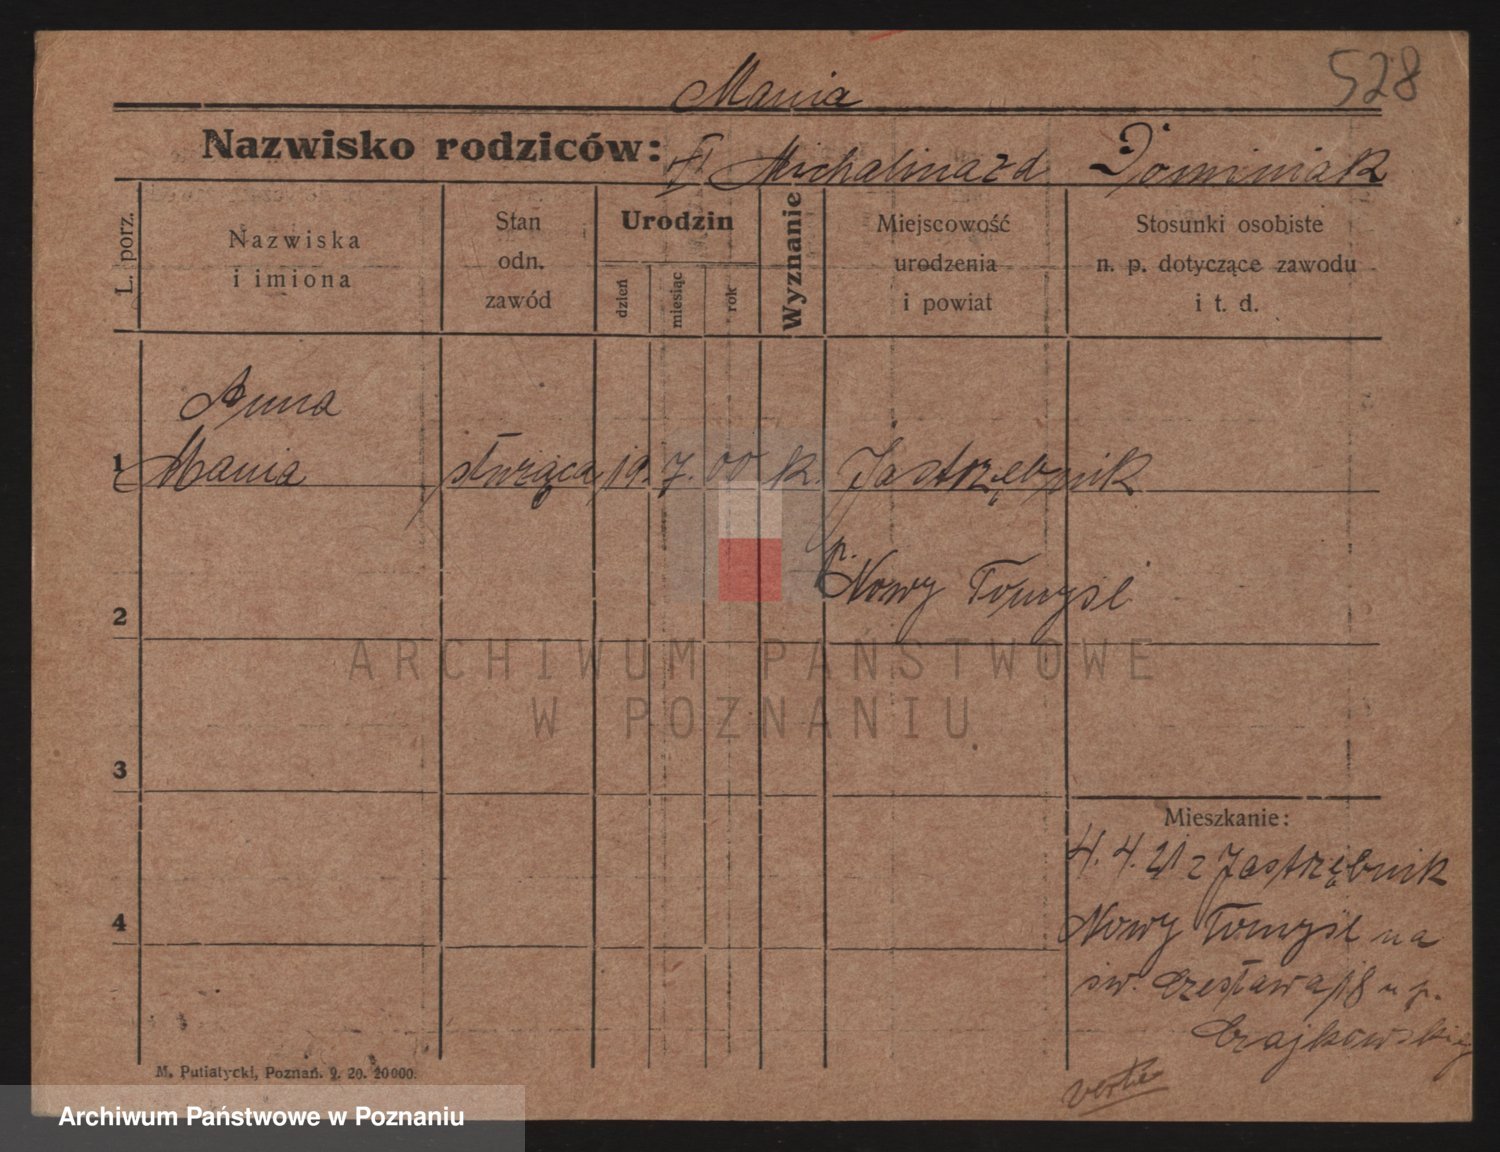 528
Mania
Nazwisko rodziców: Michalina z d Dominiak
L. porz.
Nazwiska
i imiona
Stan
odn.
zawód
Urodzin
dzień
miesiąc
rok
Wyznanie
Miejscowość
urodzenia
i powiat
Stosunki osobiste
n. p. dotyczące zawodu
i t. d.
Anna
1 Mania służąca 19. 7. 00 k. Jastrzębnik
p.
2 Nowy Tomyśl
ARCHIWUM PAŃSTWOWE
W POZNANIU
3
Mieszkanie:
4. 4. 21 z Jastrzębnik
4 Nowy Tomyśl na
św. Czesława 18 u p.
Czajkowskiej
M. Putiatycki, Poznań. 9. 20. 20000.
verte
Archiwum Państwowe w Poznaniu